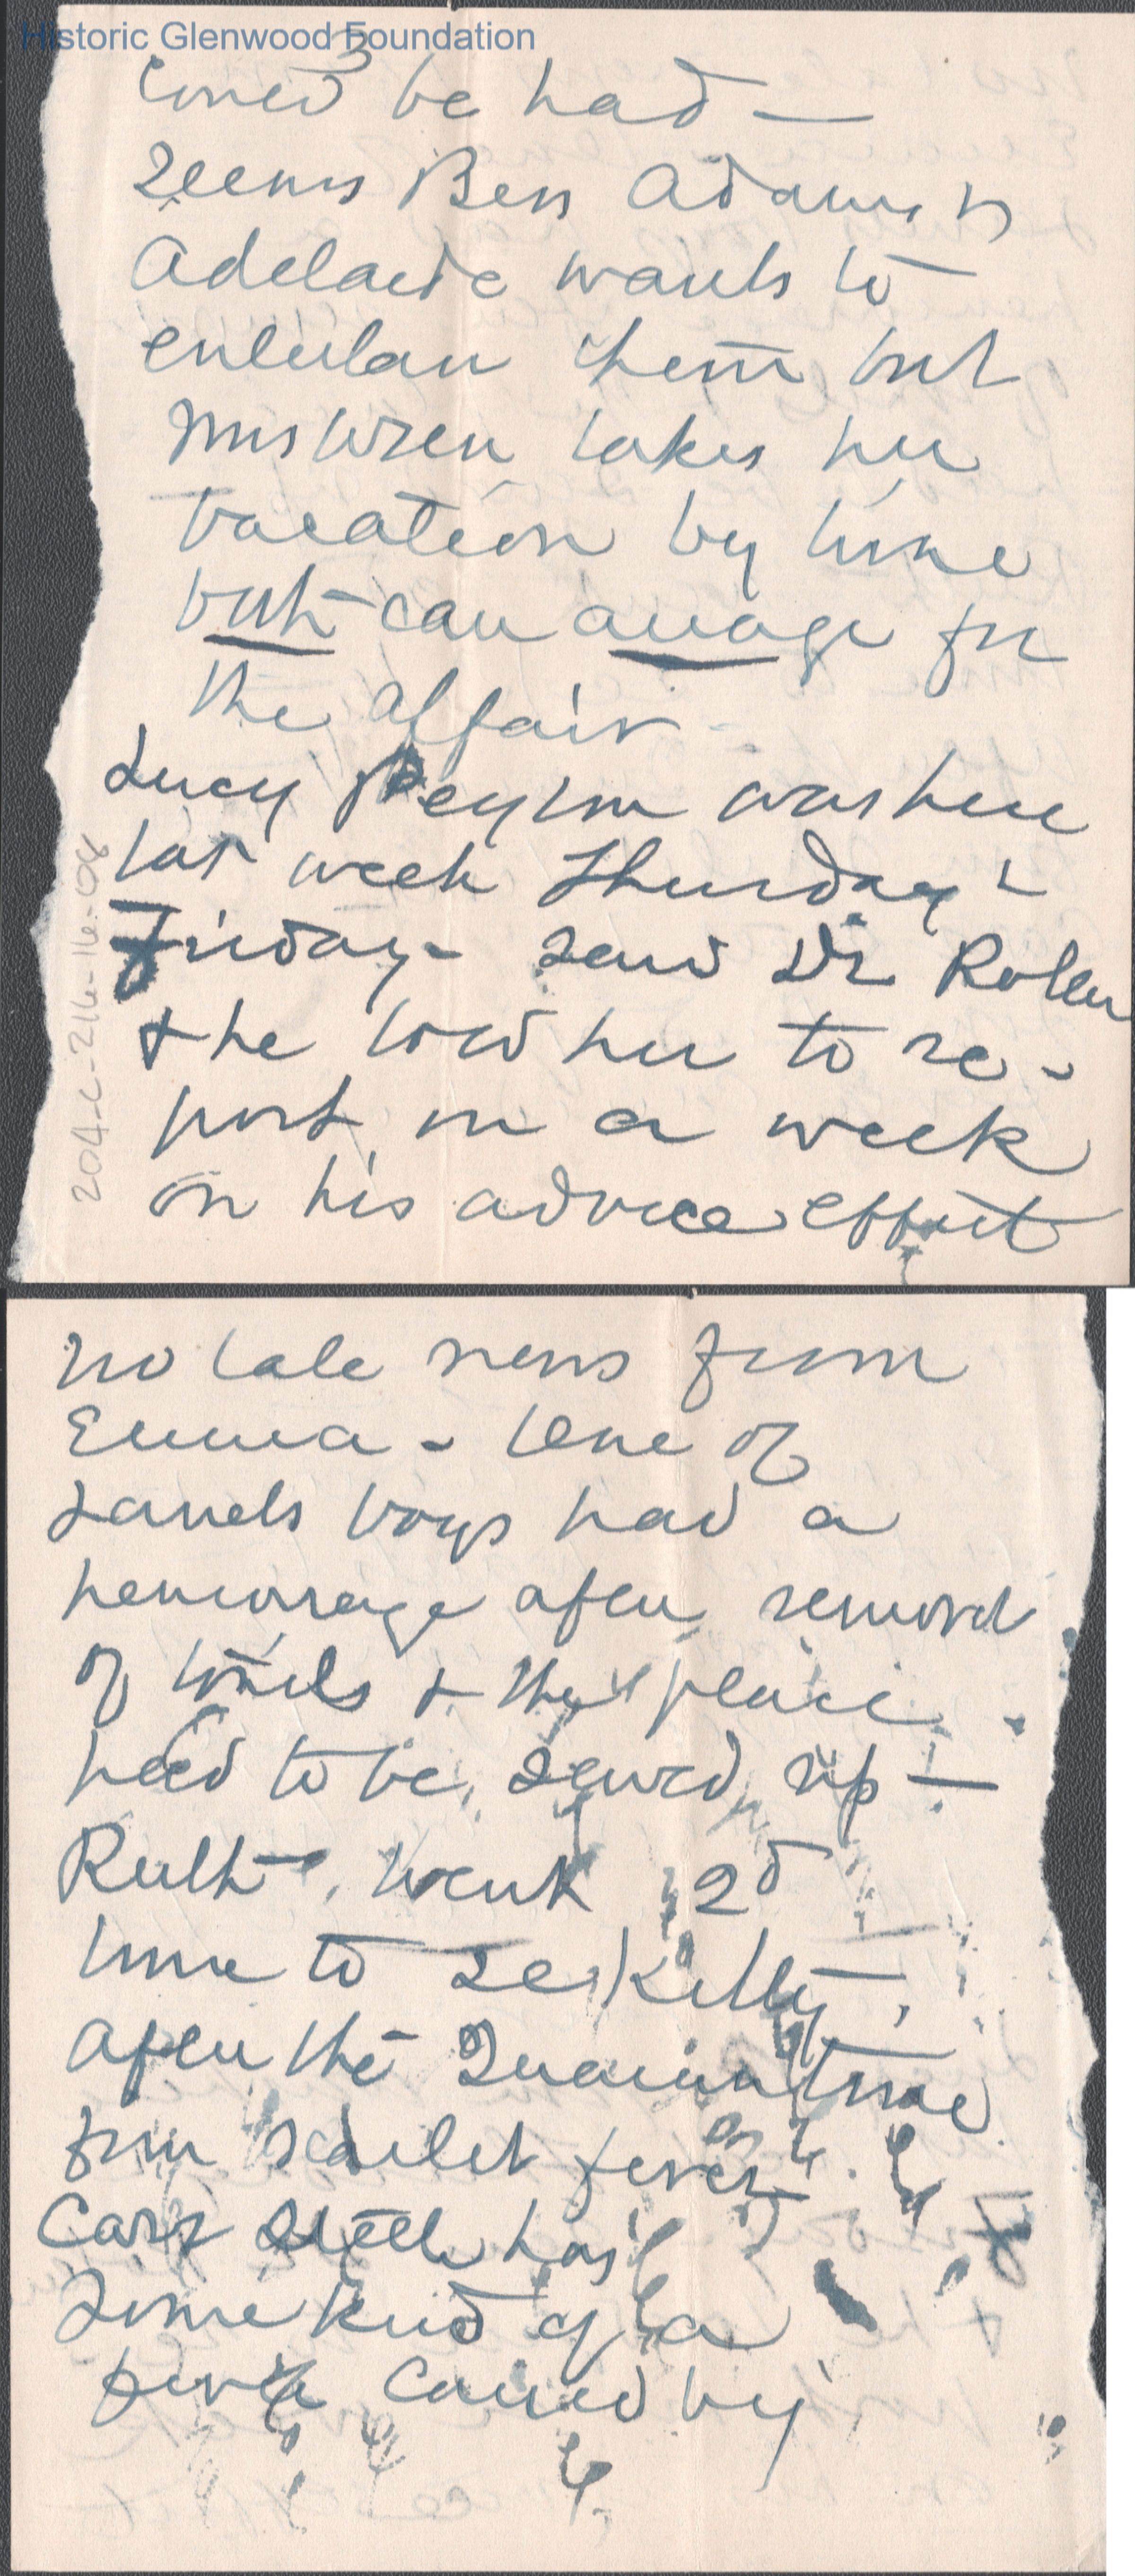 Historic Glenwood Foundation
3
could be had —
Seems Bess Adams &
Adelaide wants to
entertain them but
Miss Wren takes her
vacation by time
but can arrange for
the affair -
Lucy Peyton was here
last week Thursday &
Friday - saw Dr Roller
& he told her to re-
port in a week
on his advice effect
204-C-216-16-08
no late news from
Emma - One of
Janets boys had a
hemorrage after removal
of tonsils & the place
had to be sewed up —
Ruth went 2d
time to see Kitty
after the Quarantine
from scarlet fever
Carr Steele has
some kind of a
fever caused by